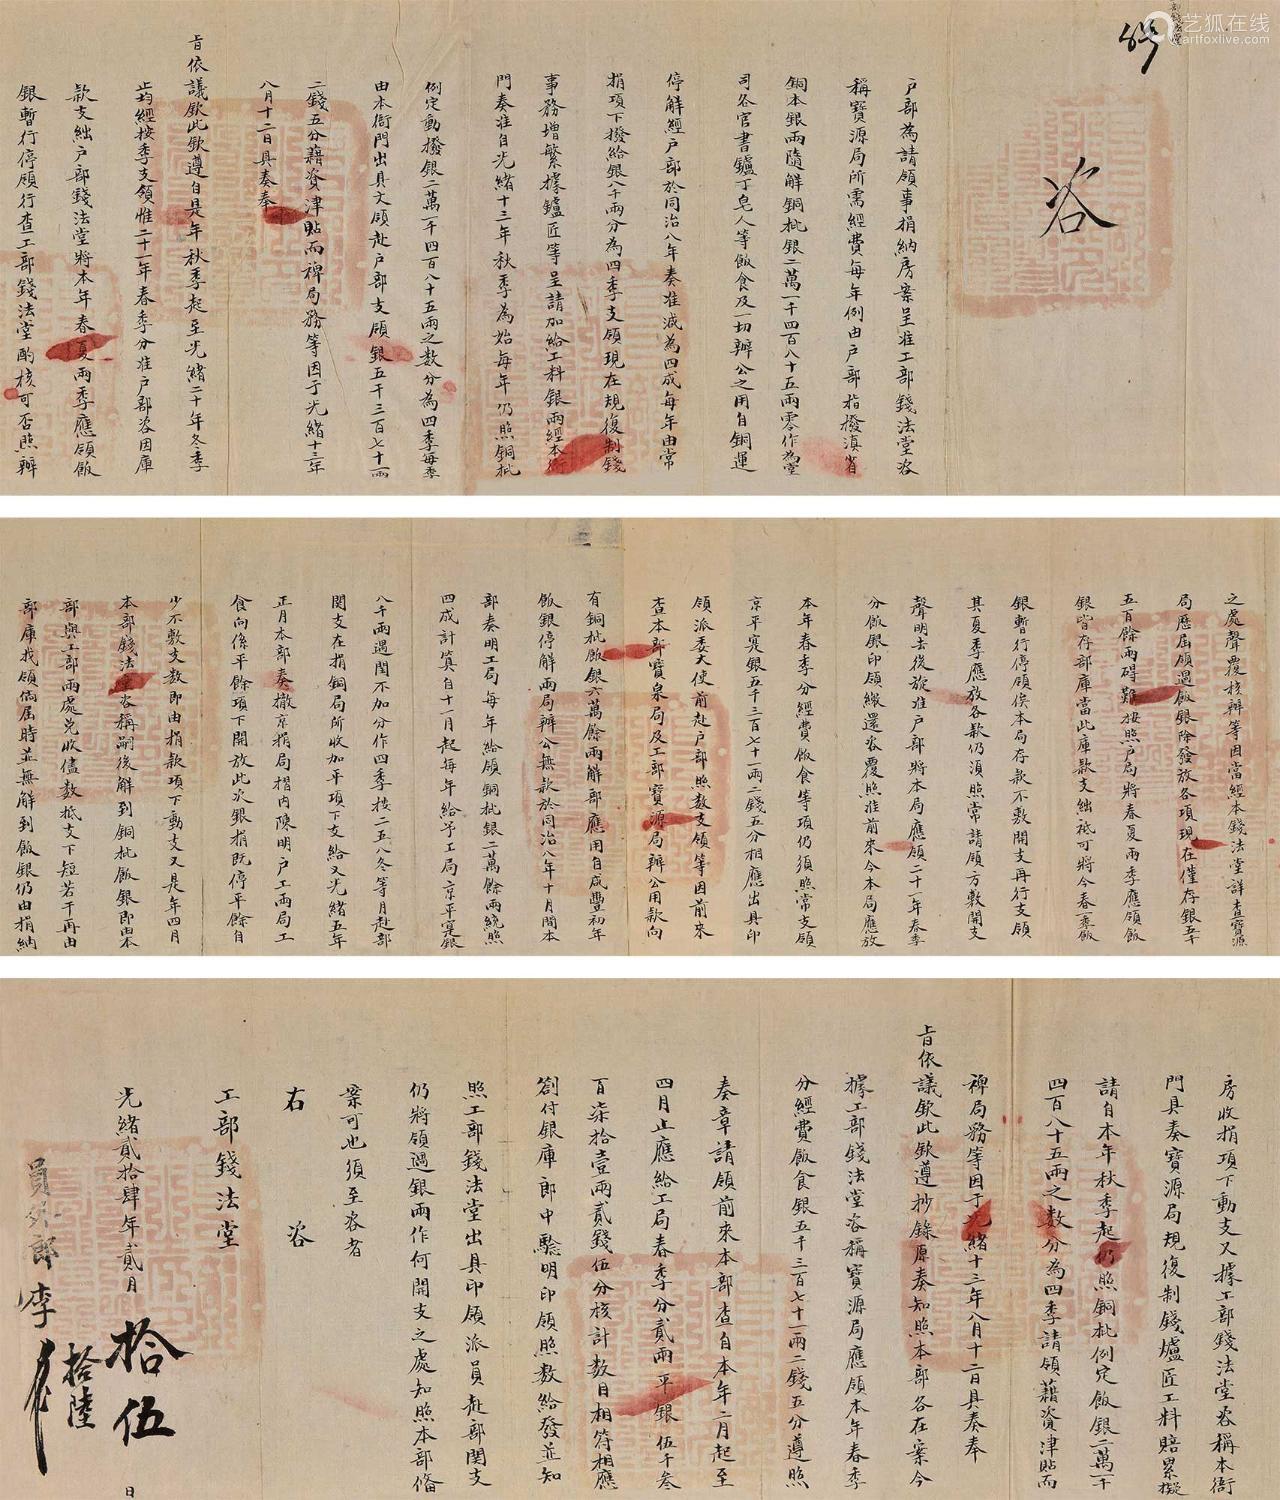 艺狐在线
artfoxlive.com
咨
戶部為請領事捐納房案呈准工部錢法堂咨
稱寶源局所需經費每年例由戶部指撥滇省
銅本銀兩隨解銅批銀二萬一千四百八十五兩零作為堂
司各官書鑪丁皂人等飯食及一切辦公之用自銅運
停解經戶部於同治八年奏准減為四成每年由常
捐項下撥給銀八千兩分為四季支領現在規復制錢
事務增繁據鑪匠等呈請加給工料銀兩經本衙
門奏准自光緒十三年秋季為始每年仍照銅批
例定動撥銀二萬一千四百八十五兩之數分為四季每季
由本衙門出具文領赴戶部支領銀五千三百七十一兩
二錢五分藉資津貼而裨局務等因于光緒十三年
八月十二日具奏奉
旨依議欽此欽遵自是年秋季起至光緒二十年冬季
止均經按季支領惟二十一年春季分准戶部咨因庫
款支絀戶部錢法堂將本年春夏兩季應領飯
銀暫行停領行查工部錢法堂酌核可否照辦
之處聲覆核辦等因當經本錢法堂詳查寶源
局歷屆領過飯銀除發放各項現在僅存銀五千
五百餘兩碍難按照戶局將春夏兩季應領飯
銀皆存部庫當此庫款支絀祇可將今春一季飯
銀暫行停領俟本局存款不敷開支再行支領
其夏季應放各款仍須照常請領方敷開支
聲明去後旋准戶部將本局應領二十一年春季
分飯銀印領繳還咨覆照准前來今本局應放
本年春季分經費飯食等項仍須照常支領
京平寔銀五千三百七十一兩二錢五分相應出具印
領派委大使前赴戶部照數支領等因前來
查本部寶泉局及工部寶源局辦公用款向
有銅批飯銀六萬餘兩解部應用自咸豐初年
飯銀停解兩局辦公無款於同治八年十月間本
部奏明工局每年給領銅批銀二萬餘兩統照
四成計算自十一月起每年給予工局京平寔銀
八千兩遇閏不加分作四季按二五八冬等月赴部
関支在捐銅局所收加平項下支給又光緒五年
正月本部奏撤京捐局摺內陳明戶工兩局工
食向係平餘項下開放此次銀捐既停平餘自
少不敷支數即由捐款項下動支又是年四月
本部錢法堂咨稱嗣後解到銅批飯銀即由本
部與工部兩處兑收儘數抵支下短若干再由
部庫找領倘屆時並無解到飯銀仍由捐納
房收捐項下動支又據工部錢法堂咨稱本衙
門具奏寶源局規復制錢爐匠工料賠累擬
請自本年秋季起仍照銅批例定飯銀二萬一千
四百八十五兩之數分為四季請領藉資津貼而
裨局務等因于光緒十三年八月十二日具奏奉
旨依議欽此欽遵抄錄原奏知照本部各在案今
據工部錢法堂咨稱寶源局應領本年春季
分經費飯食銀五千三百七十一兩二錢五分遵照
奏章請領前來本部查自本年二月起至
四月止應給工局春季分貳兩平銀伍千叁
百柒拾壹兩貳錢伍分核計數目相符相應
劄付銀庫郎中驗明印領照數給發並知
照工部錢法堂出具印領派員赴部関支
仍將領過銀兩作何開支之處知照本部備
案可也須至咨者
右咨
工部錢法堂
光緒貳拾肆年貳月拾伍日
拾陸
員外郎李